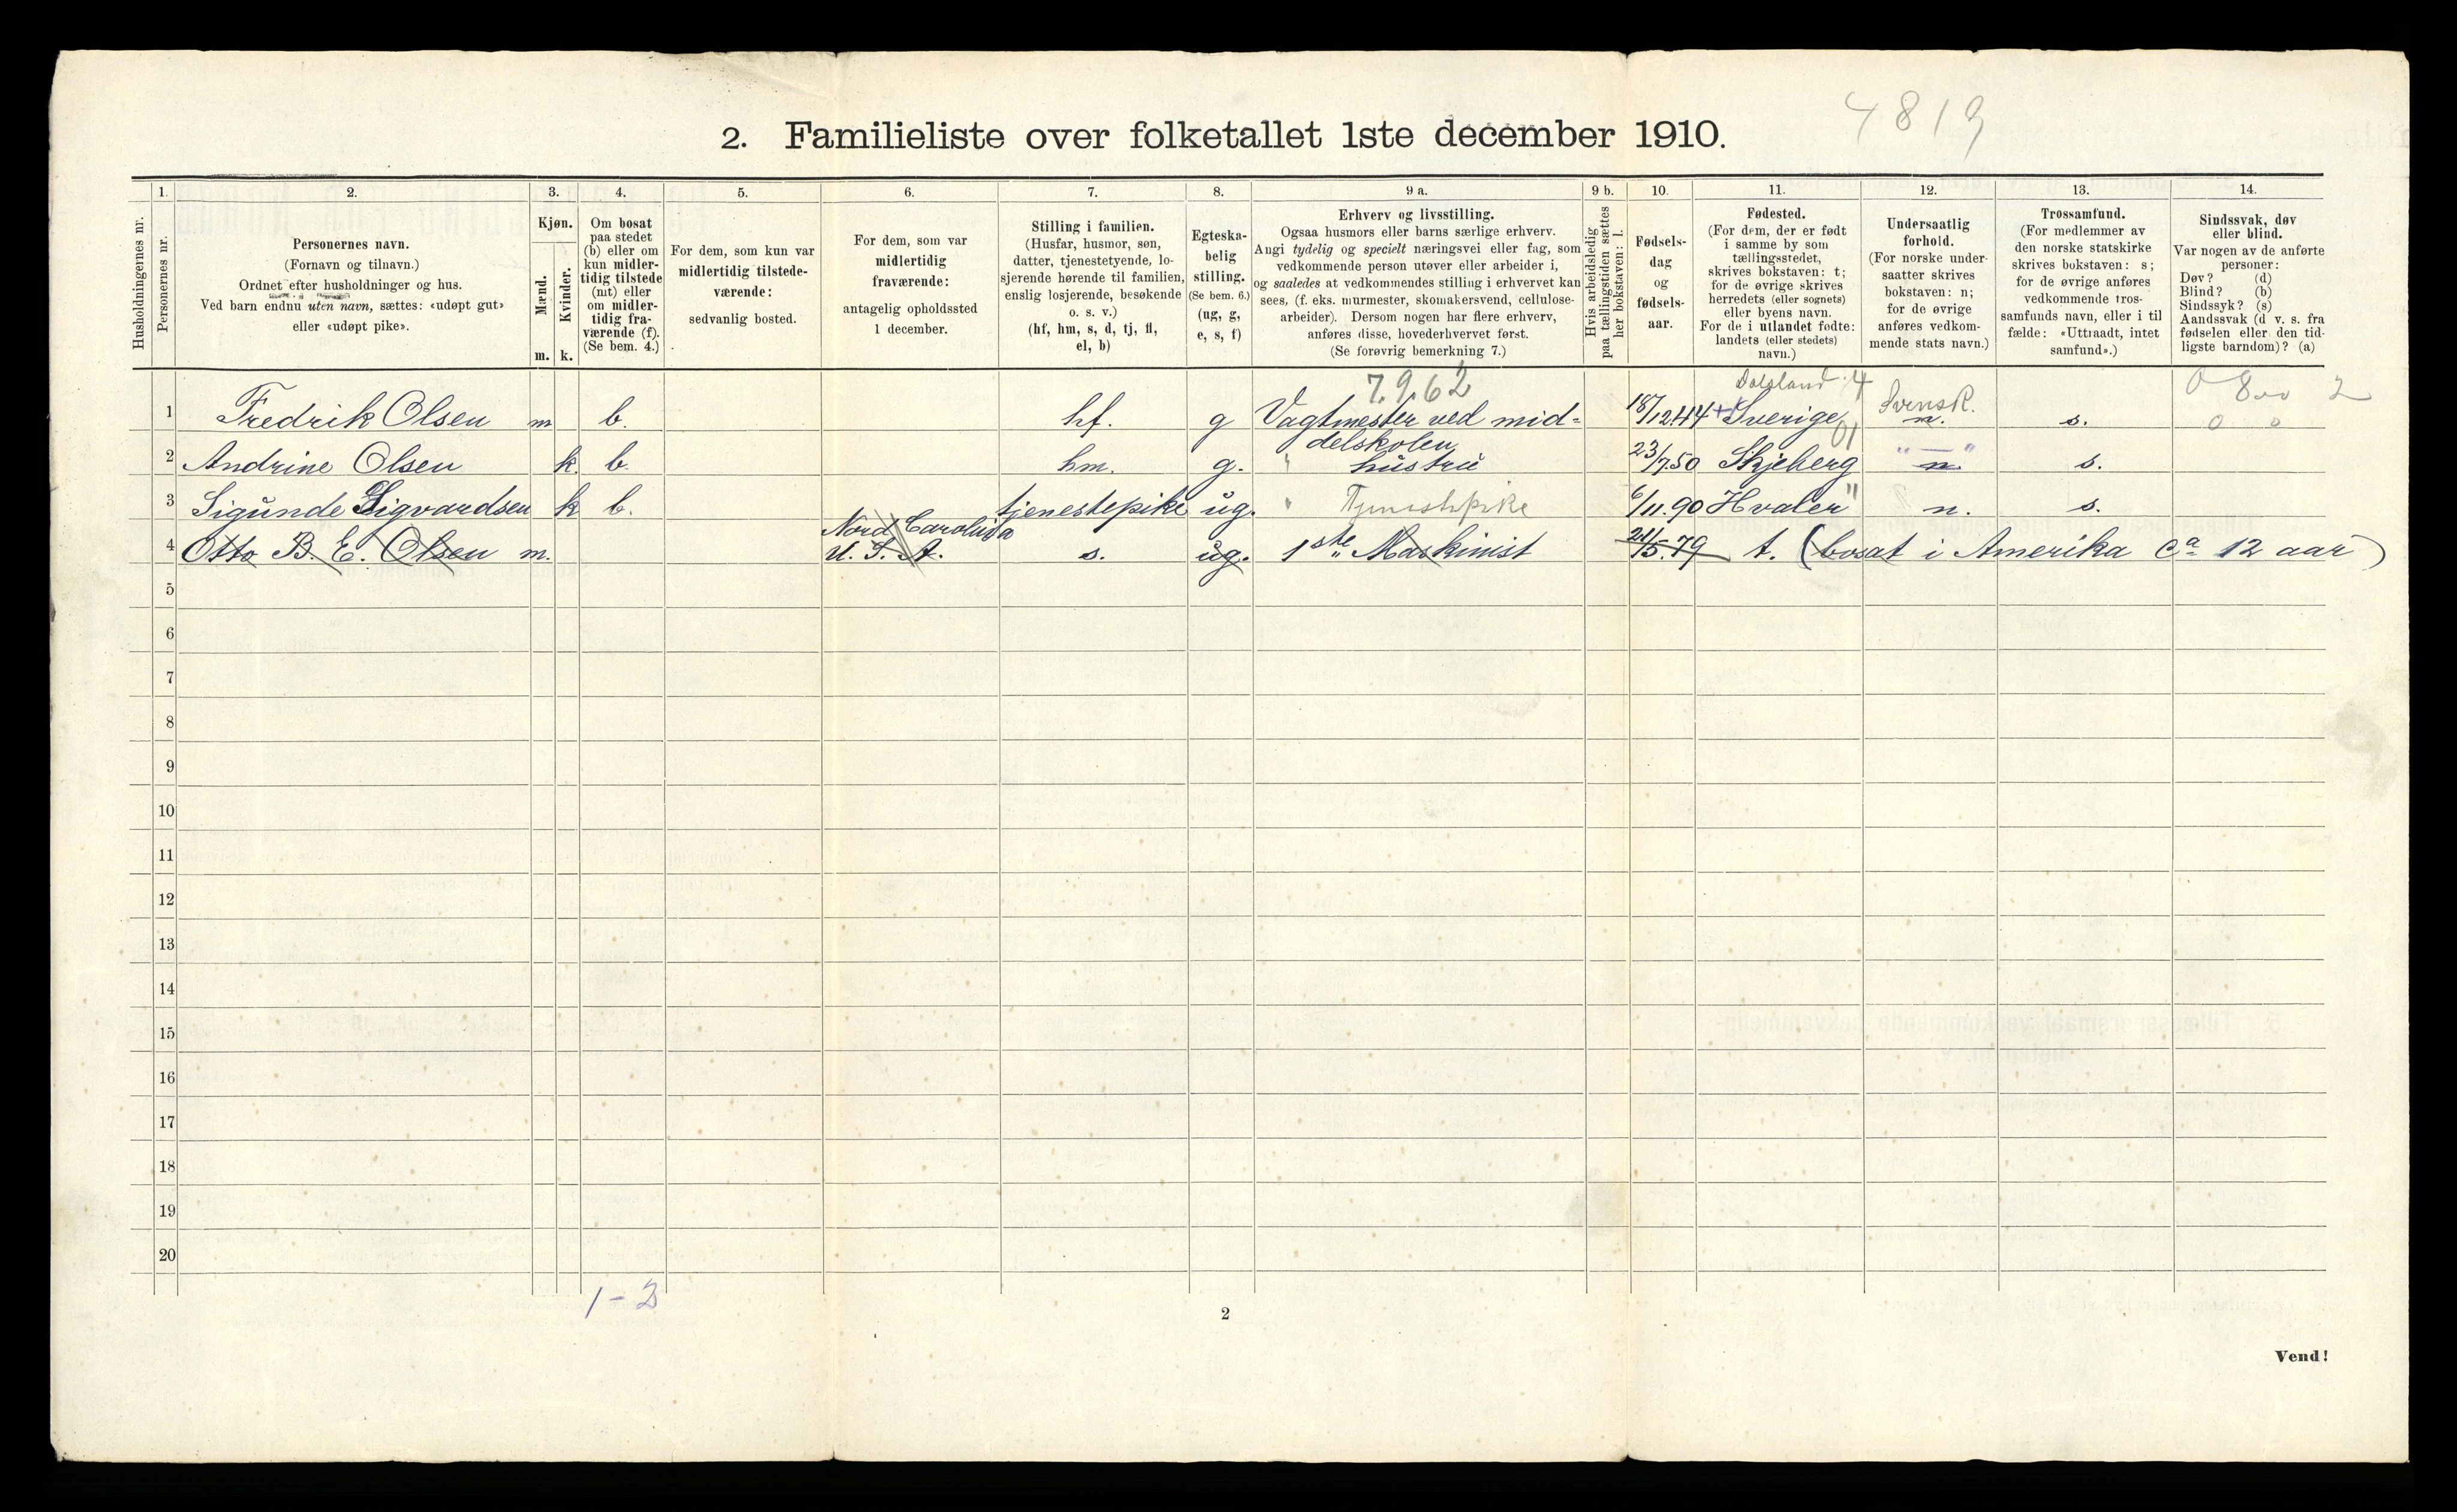 4819
2. Familieliste over folketallet 1ste december 1910.
1. 2. 3. 4. 5. 6. 7. 8. 9 a. 9 b. 10. 11. 12. 13. 14.
Husholdningernes nr.
Personernes nr.
Personernes navn.
(Fornavn og tilnavn.)
Ordnet efter husholdninger og hus.
Ved barn endnu uten navn, sættes: «udøpt gut»
eller «udøpt pike».
Kjøn.
Mænd.
Kvinder.
m. k.
Om bosat
paa stedet
(b) eller om
kun midler-
tidig tilstede
(mt) eller
om midler-
tidig fra-
værende (f).
(Se bem. 4.)
For dem, som kun var
midlertidig tilstede-
værende:
sedvanlig bosted.
For dem, som var
midlertidig
fraværende:
antagelig opholdssted
1 december.
Stilling i familien.
(Husfar, husmor, søn,
datter, tjenestetyende, lo-
sjerende hørende til familien,
enslig losjerende, besøkende
o. s. v.)
(hf, hm, s, d, tj, fl,
el, b)
Egteska-
belig
stilling.
(Se bem. 6.)
(ug, g,
e, s, f)
Erhverv og livsstilling.
Ogsaa husmors eller barns særlige erhverv.
Angi tydelig og specielt næringsvei eller fag, som
vedkommende person utøver eller arbeider i,
og saaledes at vedkommendes stilling i erhvervet kan
sees, (f. eks. murmester, skomakersvend, cellulose-
arbeider). Dersom nogen har flere erhverv,
anføres disse, hovederhvervet først.
(Se forøvrig bemerkning 7.)
Hvis arbeidsledig
paa tællingstiden sættes
her bokstaven: l.
Fødsels-
dag
og
fødsels-
aar.
Fødested.
(For dem, der er født
i samme by som
tællingsstedet,
skrives bokstaven: t;
for de øvrige skrives
herredets (eller sognets)
eller byens navn.
For de i utlandet fødte:
landets (eller stedets)
navn.)
Undersaatlig
forhold.
(For norske under-
saatter skrives
bokstaven: n;
for de øvrige
anføres vedkom-
mende stats navn.)
Trossamfund.
(For medlemmer av
den norske statskirke
skrives bokstaven: s;
for de øvrige anføres
vedkommende tros-
samfunds navn, eller i til
fælde: «Uttraadt, intet
samfund».)
Sindssvak, døv
eller blind.
Var nogen av de anførte
personer:
Døv? (d)
Blind? (b)
Sindssyk? (s)
Aandssvak (d v. s. fra
fødselen eller den tid-
ligste barndom)? (a)
7.9.62 Dalsland 4 Svensk. 0 2
1 Fredrik Olsen m b. hf. g Vagtmester ved mid= 18/12 44 + Sverige n. s. 0 0
delskolen 01
2 Andrine Olsen k. b. hm. g. " hustru 23/7.50 Skjeberg "—" n s.
3 Sigunde Sigvardsen k b. tjenestepike ug. " Tjenestepike 6/11.90 Hvaler " n. s.
Nord Carolina
4 Otto B. E. Olsen m. U. S. A. s. ug. 1ste Maskinist 21/5.79 t. (bosat i Amerika ca 12 aar)
5
6
7
8
9
10
11
12
13
14
15
16
17
18
19
20
1-2
2
Vend!